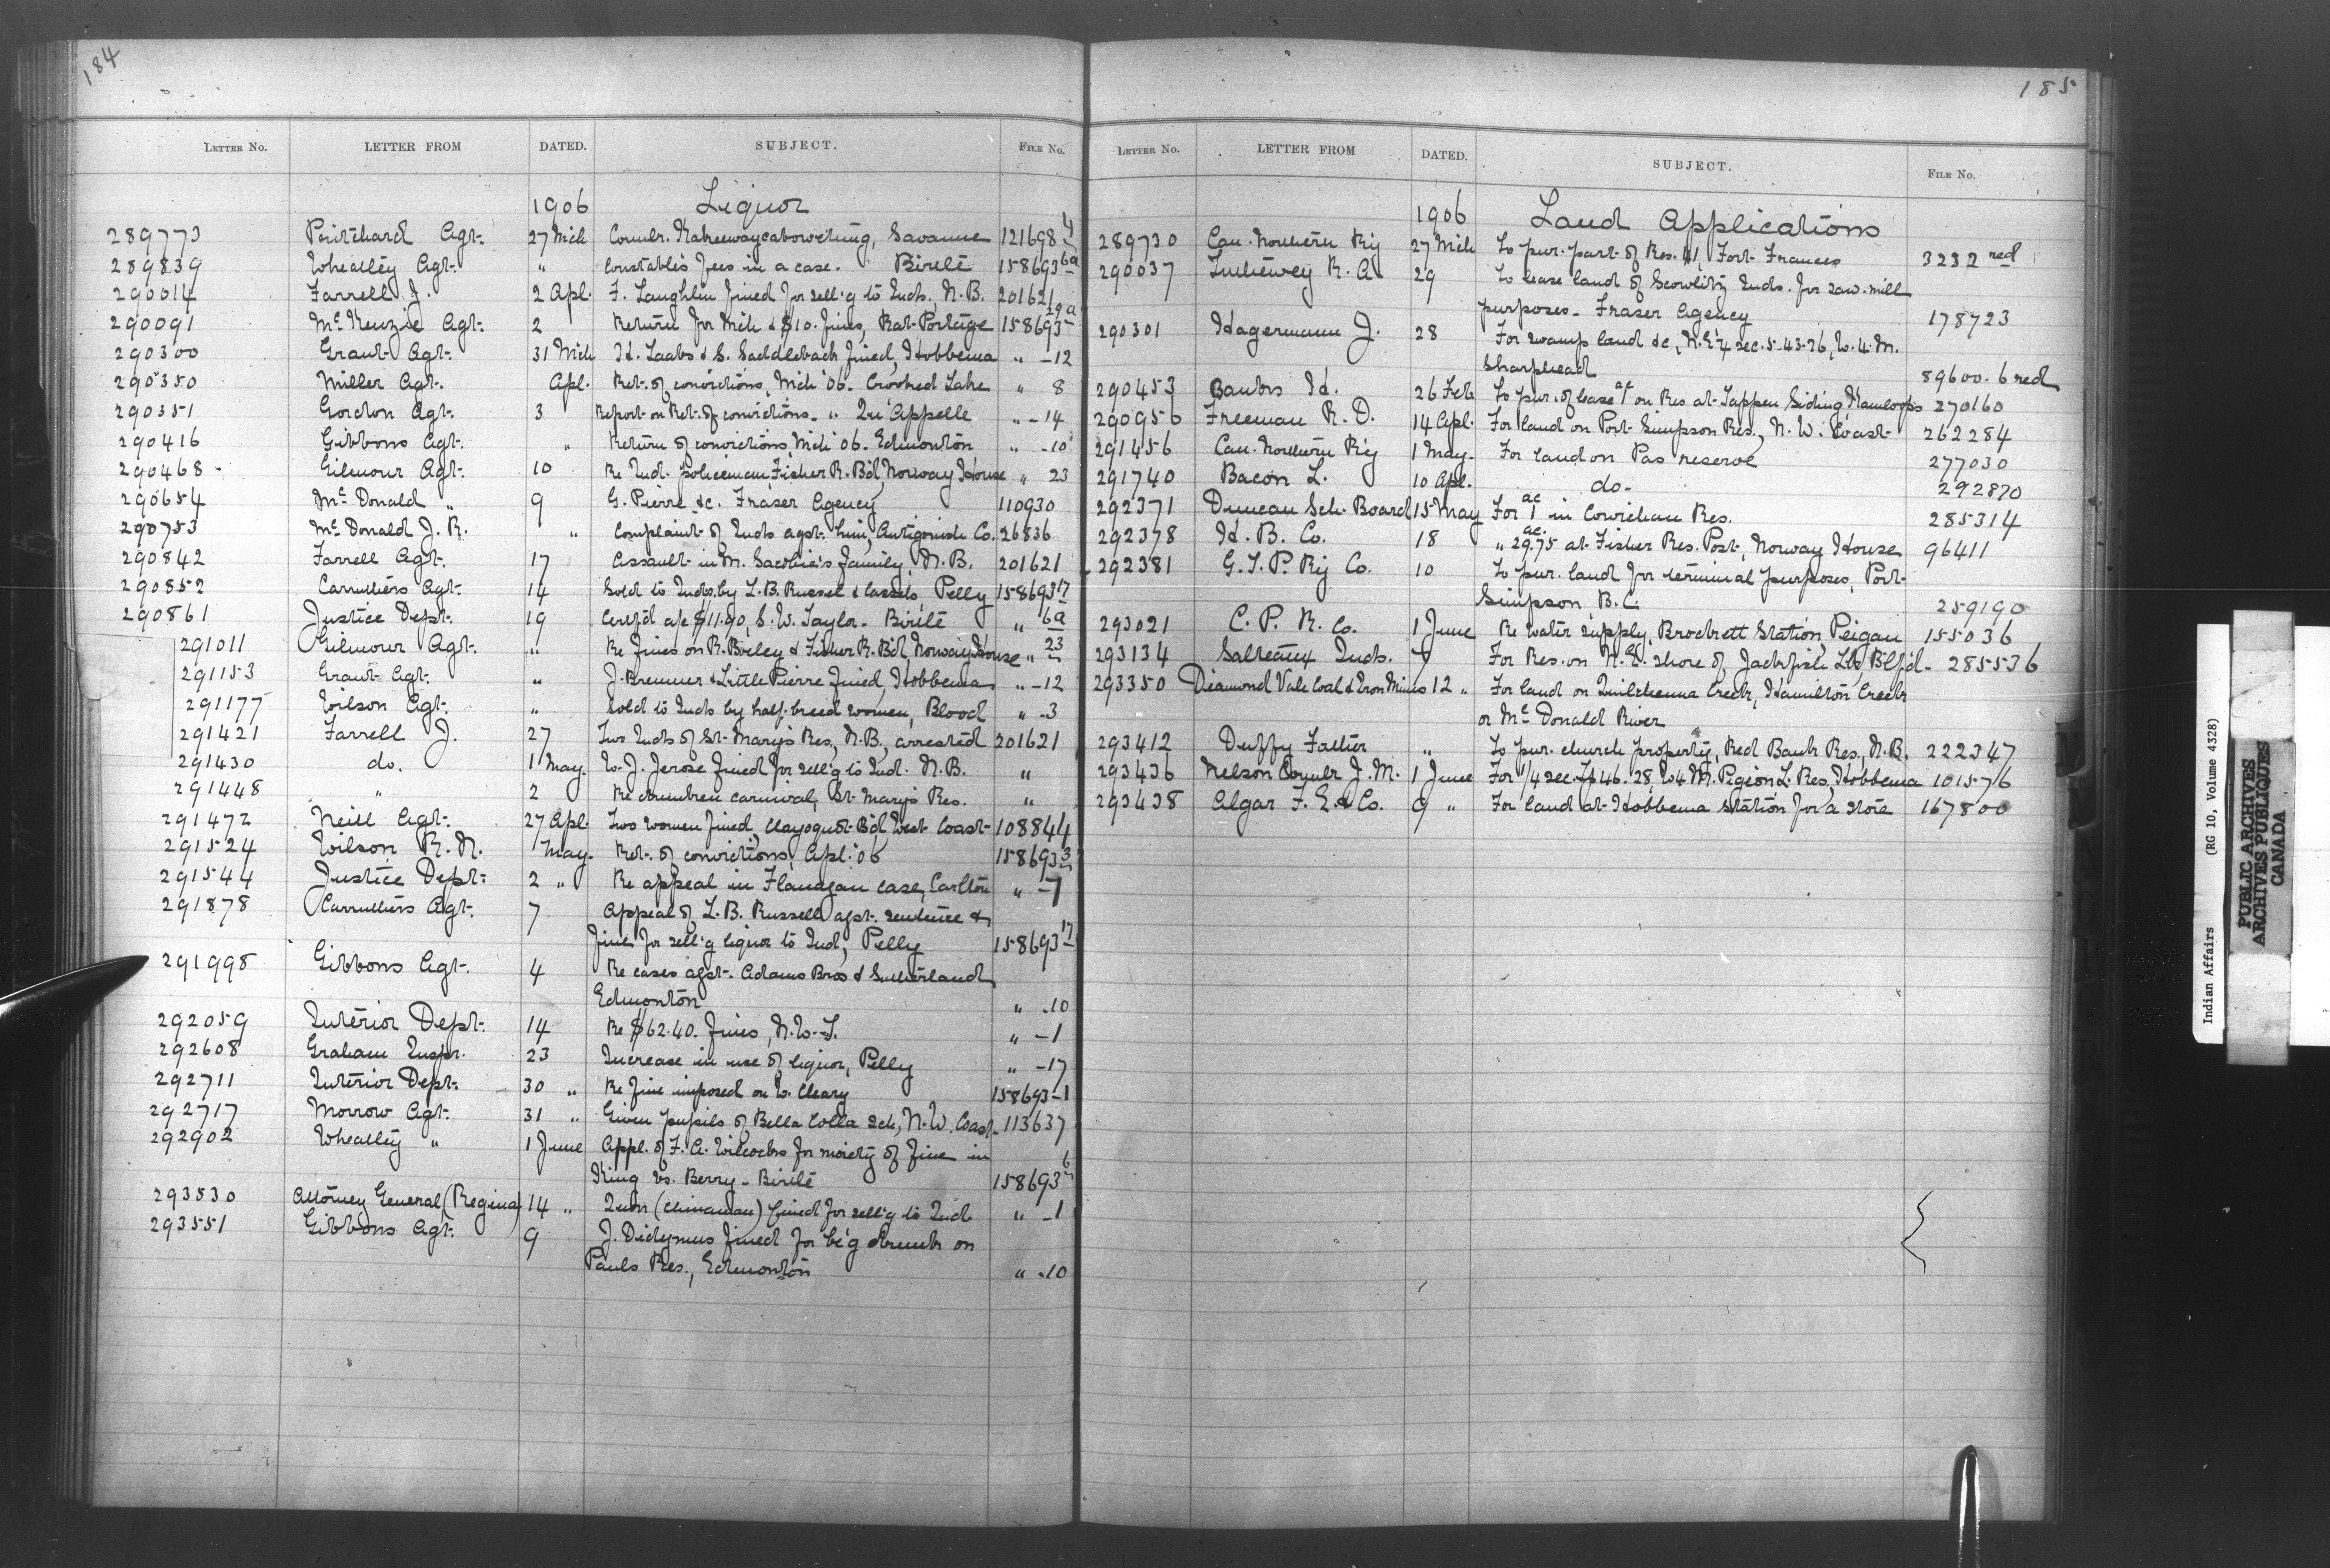 184
LETTER No. LETTER FROM DATED. SUBJECT. FILE No.
1906 Liquor
289773 Pritchard Agt. 27 Mch Councillr. Savanne 121698-4
289839 Wheatley Agt. " Constable's fees in a case. Birtle 158693-6a
290014 Farrell J. 2 Apl. F. Laughlin fined for sell'g to Inds., N.B. 201621
290091 McKenzie Agt. 2 Return for Mch & $10. fines, Rat Portage 158693-29a
290300 Grant Agt. 31 Mch H. Laabs & S. Saddleback fined, Hobbema " -12
290350 Miller Agt. Apl. Ret. of convictions, Mch '06. Crooked Lake " 8
290351 Gordon Agt. 3 Report on Ret. of convictions - " Qu'Appelle " -14
290416 Gibbons Agt. " Return of convictions, Mch '06. Edmonton " -10
290468 Gilmour Agt. 10 Re Ind. policeman, Fisher R. B'd, Norway House " 23
290654 McDonald " 9 G. Pierre &c. Fraser Agency 110930
290753 McDonald J. R. " Complaint of Inds agst. him, Antigonish Co. 26836
290842 Farrell Agt. 17 Assault in M. Sacobie's family, N.B. 201621
290852 Carruthers Agt. 14 Sold to Inds. by L. B. Russel & Cassels, Pelly 158693-17
290861 Justice Dept. 19 Cert'd a/c $11.90, S. W. Taylor - Birtle " 6a
291011 Gilmour Agt. " Re fines on R. Bailey & Fisher R. B'd, Norway House " 23
291153 Grant Agt. " J. Bremner & Little Pierre fined, Hobbema " -12
291177 Wilson Agt. " Sold to Inds by half-breed women, Blood " -3
291421 Farrell J. 27 Two Inds of St. Mary's Res., N.B., arrested 201621
291430 do. 1 May. W. J. Jerose fined for sell'g to Ind. N.B. "
291448 " 2 Re drunken carnival, St. Mary's Res. "
291472 Neill Agt. 27 Apl. Two women fined, Clayoquot B'd West Coast 108844
291524 Wilson R. N. May. Ret. of convictions, Apl. '06 158693-3
291544 Justice Dept. 2 " Re appeal in Flanagan case, Carlton " -7
291878 Carruthers Agt. 7 Appeal of L. B. Russell agst. sentence &
fine for sell'g liquor to Ind, Pelly 158693-17
291998 Gibbons Agt. 4 Re cases agst. Adams Bros & Sutherland
Edmonton " -10
292059 Interior Dept. 14 Re $62.40. fines, N.W.T. " -1
292608 Graham Inspr. 23 Increase in use of liquor, Pelly " -17
292711 Interior Dept. 30 " Re fine imposed on W. Cleary 158693-1
292717 Morrow Agt. 31 " Given pupils of Bella Colla Sch, N.W. Coast 113637
292902 Wheatley " 1 June Appl. of F. A. Wilcocks for moiety of fine in
King vs. Berry - Birtle 158693-6
293530 Attorney General (Regina) 14 " Quon (Chinaman) fined for sell'g to Ind " -1
293551 Gibbons Agt. 9 J. Didymus fined for be'g drunk on
Pauls Res., Edmonton " -10
185
LETTER No. LETTER FROM DATED. SUBJECT. FILE No.
1906 Land Applications
289730 Can. Northern Ry 27 Mch To pur. part of Res. #1, Fort Frances 3232 red
290037 R. A. 29 To lease land of Scowlitz Inds. for saw-mill
purposes - Fraser Agency 178723
290301 Hagermann J. 28 For swamp land &c, N.E 1/4 Sec. 5-43-26, W. 4. M.
Sharphead 89600-6 red
290453 Banks H. 26 Feb To pur. of lease 1 ac on Res at Tappen Siding, Kamloops 270160
290956 Freeman R. D. 14 Apl. For land on Port Simpson Res., N. W. Coast 262284
291456 Can. Northern Ry 1 May. For land on Pas reserve 277030
291740 Bacon L. 10 Apl. do. 292870
292371 Duncan Sch. Board 15 May For 1 ac in Cowichan Res. 285314
292378 H. B. Co. 18 " 29.75 ac. at Fisher Res. Post, Norway House 96411
292381 G. T. P. Ry Co. 10 To pur. land for terminal purposes, Port
Simpson, B.C. 259190
293021 C. P. R. Co. 1 June Re water supply, Brockett Station, Peigan 155036
293134 Salteaux Inds. 7 For Res. on N.E. shore of Jackfish Lke, Blf'd - 285536
293350 Diamond Vale Coal & Iron Mines 12 " For land on Quilchenna Creek, Hamilton Creek
or McDonald River
293412 Duffy Father " To pur. church property, Red Bank Res., N.B. 222347
293436 Nelson Councillr J. M. 1 June For 1/4 sec. Tp 46. 28, W4 M. Pigeon L. Res, Hobbema 101576
293438 Algar F. E & Co. 9 " For land at Hobbema station for a store 167800
Indian Affairs (RG 10, Volume 4328)
PUBLIC ARCHIVES
ARCHIVES PUBLIQUES
CANADA